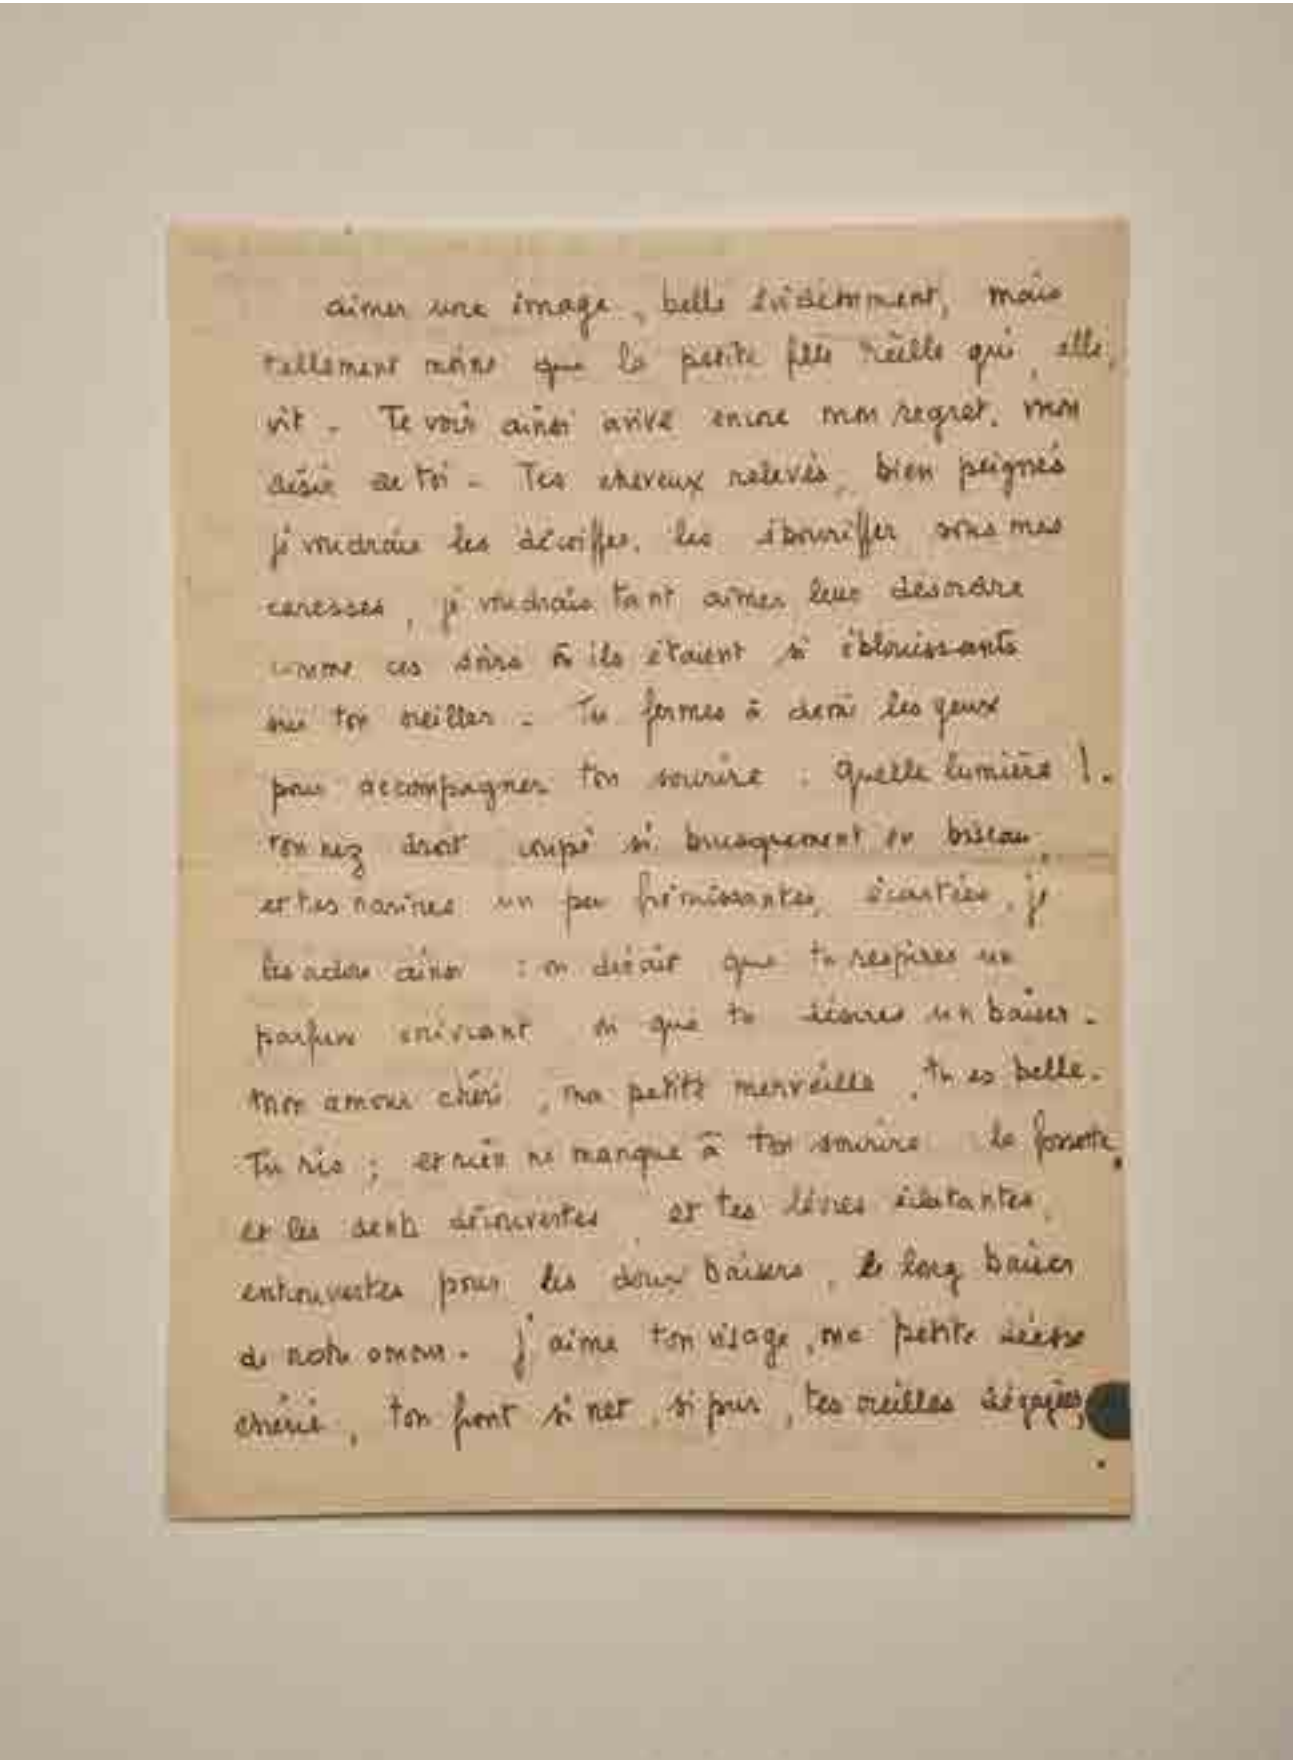 aimer une image, belle évidemment, mais
tellement moins que la petite fille réelle qui, elle,
vit - Te voir ainsi avive encore mon regret, mon
désir de toi - Tes cheveux relevés, bien peignés
je voudrais les décoiffer, les ébouriffer sous mes
caresses, je voudrais tant aimer leur désordre
comme ces soirs où ils étaient si éblouissants
sur ton oreiller - Tu fermes à demi les yeux
pour accompagner ton sourire : quelle lumière !.
ton nez droit coupé si brusquement en biseau,
et tes narines un peu frémissantes, écartées, je
les adore ainsi : on dirait que tu respires un
parfum enivrant ou que tu désires un baiser -
mon amour chéri, ma petite merveille, tu es belle.
Tu ris ; et rien ne manque à ton sourire la fossette,
et les dents découvertes et tes lèvres éclatantes,
entrouvertes pour les doux baisers, le long baiser
de notre amour. J'aime ton visage, ma petite déesse
chérie, ton front si net, si pur, tes oreilles dégagées,